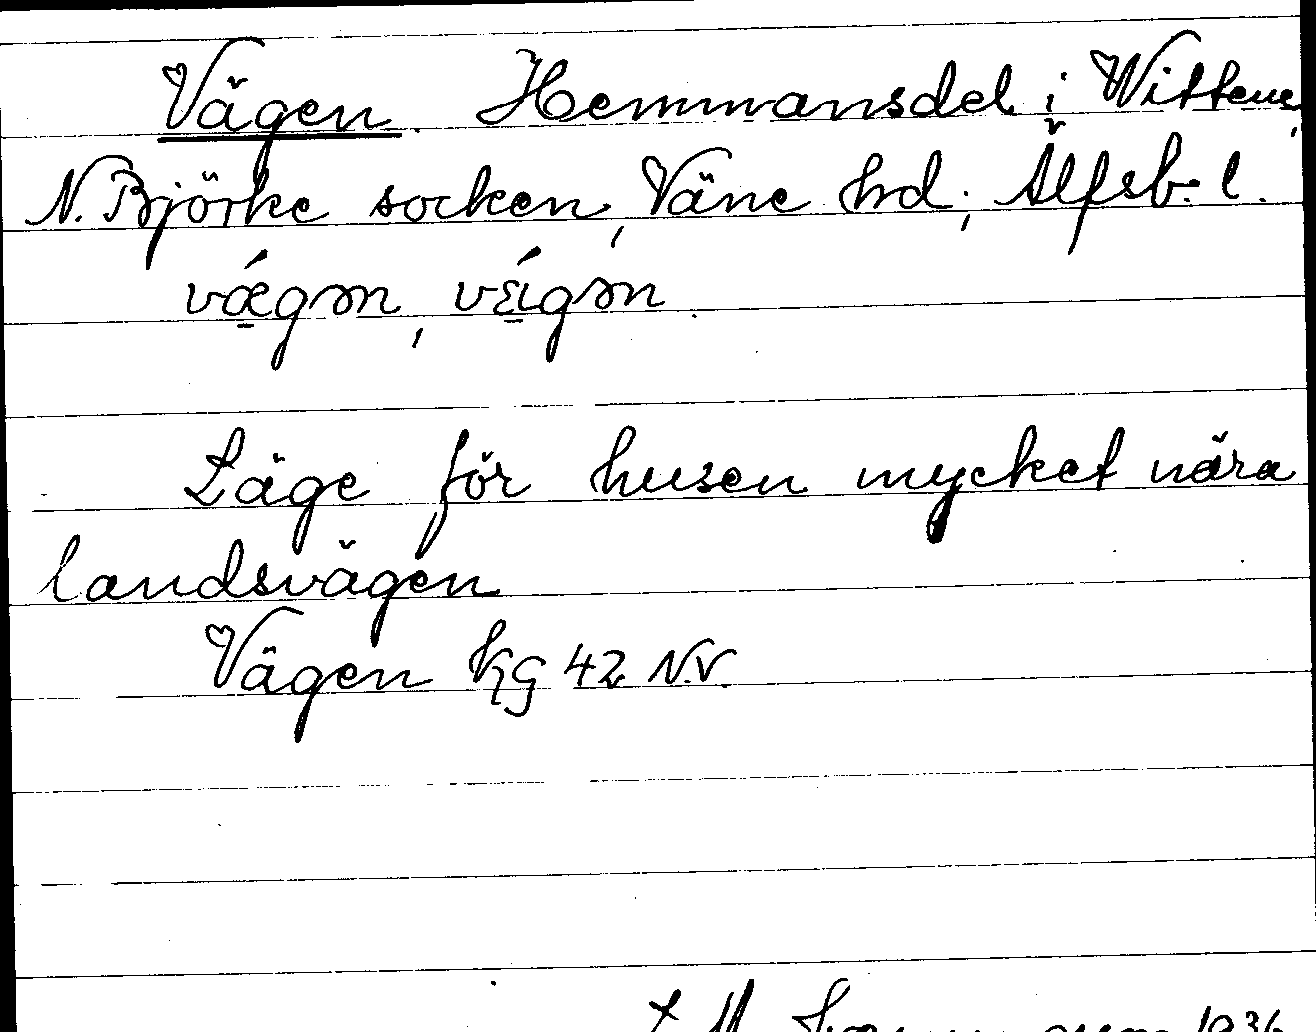 Vägen. Hemmansdel i Wittene,
N. Björke socken, Väne hd; Älfsb. l.
vǽgən, vɛ́gən.
Läge för husen mycket nära
landsvägen
Vägen KG 42 N.V.
1936